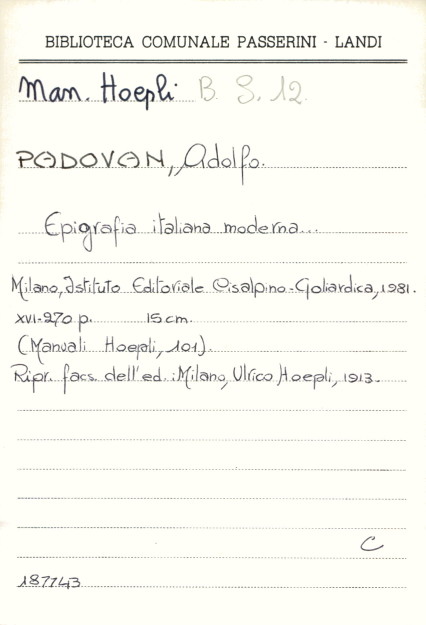 BIBLIOTECA COMUNALE PASSERINI - LANDI
Man. Hoepli B. S. 12.
PADOVAN, Adolfo.
Epigrafia italiana moderna...
Milano, Istituto Editoriale Cisalpino-Goliardica, 1981.
XVI-270 p. 15 cm.
(Manuali Hoepli, 101).
Ripr. facs. dell'ed.: Milano, Ulrico Hoepli, 1913.
C
187743